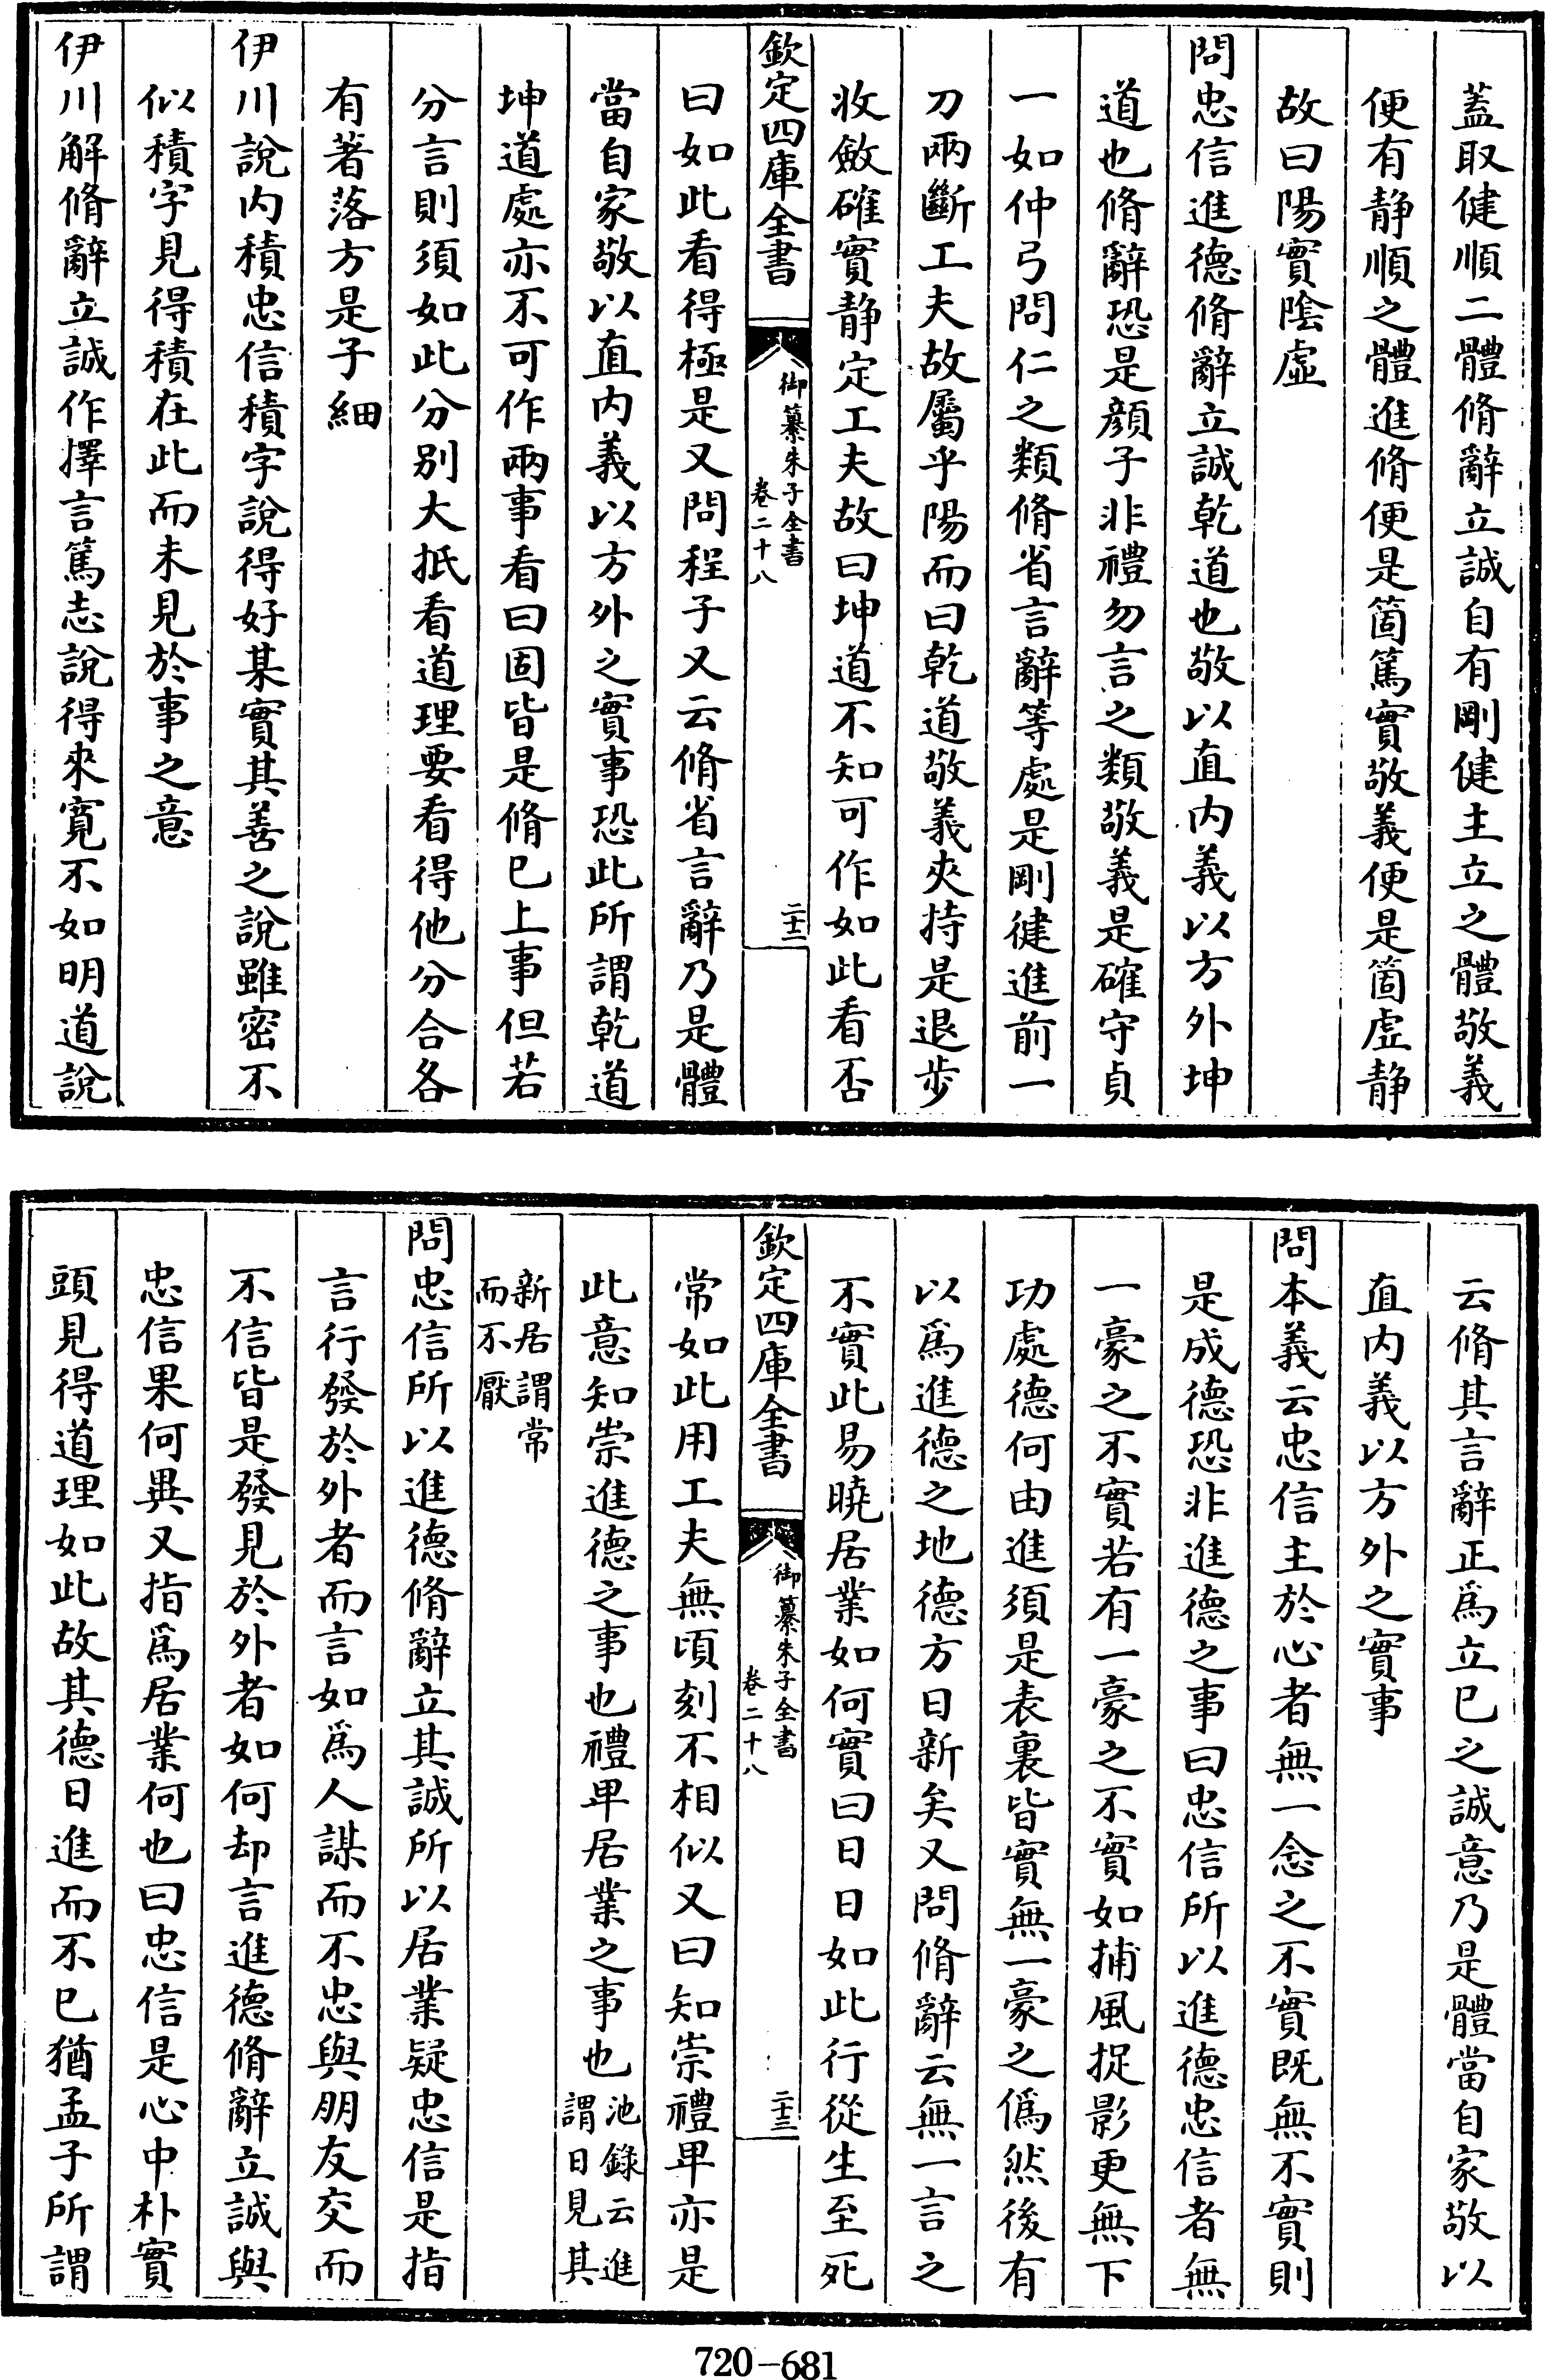 蓋取健順二體脩辭立誠自有剛健主立之體敬義
便有静順之體進脩便是箇篤實敬義便是箇虛静
故曰陽實陰虛
問忠信進德脩辭立誠乾道也敬以直内義以方外坤
道也脩辭恐是顔子非禮勿言之類敬義是確守貞
一如仲弓問仁之類脩省言辭等處是剛健進前一
刀兩斷工夫故屬乎陽而曰乾道敬義夾持是退步
收斂確實静定工夫故曰坤道不知可作如此看否
欽定四庫全書
御纂朱子全書
卷二十八
二十二
曰如此看得極是又問程子又云脩省言辭乃是體
當自家敬以直内義以方外之實事恐此所謂乾道
坤道處亦不可作兩事看曰固皆是脩已上事但若
分言則須如此分别大抵看道理要看得他分合各
有著落方是子細
伊川說内積忠信積字說得好某實其善之說雖密不
似積字見得積在此而未見於事之意
伊川解脩辭立誠作擇言篤志說得來寛不如明道說
云脩其言辭正爲立已之誠意乃是體當自家敬以
直内義以方外之實事
問本義云忠信主於心者無一念之不實既無不實則
是成德恐非進德之事曰忠信所以進德忠信者無
一豪之不實若有一豪之不實如捕風捉影更無下
功處德何由進須是表裏皆實無一豪之僞然後有
以爲進德之地德方日新矣又問脩辭云無一言之
不實此易曉居業如何實曰日日如此行從生至死
欽定四庫全書
御纂朱子全書
卷二十八
二十三
常如此用工夫無頃刻不相似又曰知崇禮卑亦是
此意知崇進德之事也禮卑居業之事也池錄云進
謂日見其
新居謂常
而不厭
問忠信所以進德脩辭立其誠所以居業疑忠信是指
言行發於外者而言如爲人謀而不忠與朋友交而
不信皆是發見於外者如何却言進德脩辭立誠與
忠信果何異又指爲居業何也曰忠信是心中朴實
頭見得道理如此故其德日進而不已猶孟子所謂
720-681